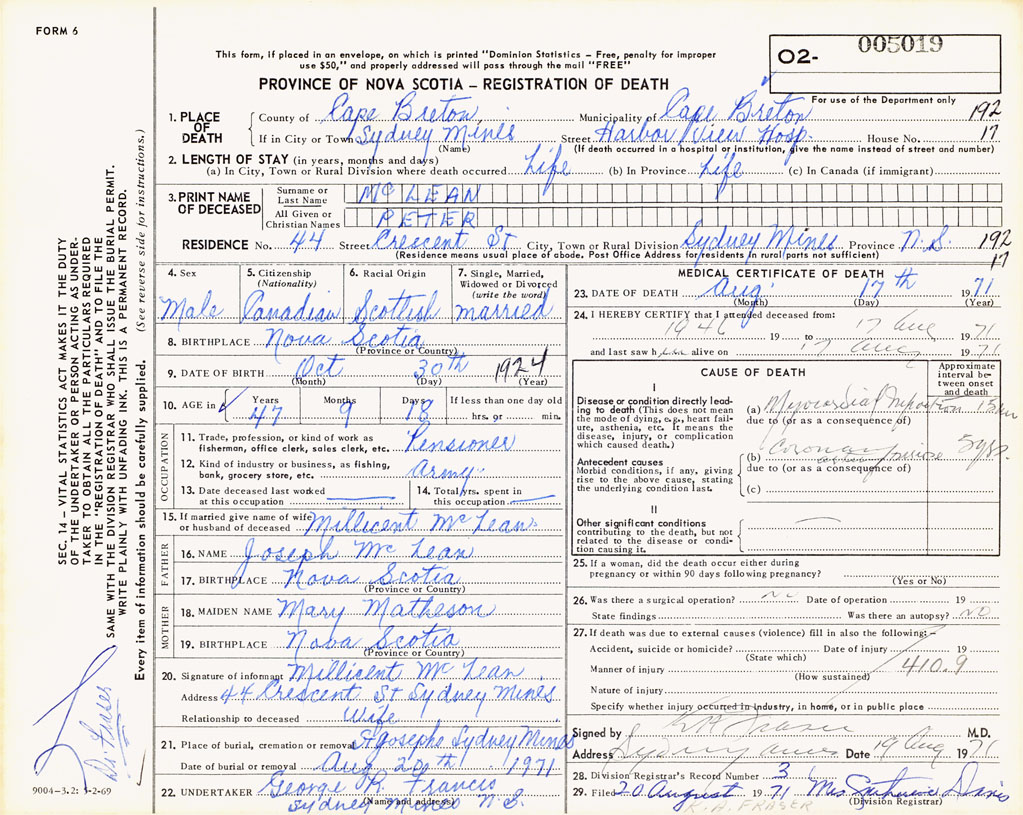 FORM 6
This form, if placed in an envelope, on which is printed "Dominion Statistics – Free, penalty for improper
use $50," and properly addressed will pass through the mail "FREE"
O2- 005019
PROVINCE OF NOVA SCOTIA – REGISTRATION OF DEATH
For use of the Department only
1. PLACE OF DEATH
County of Cape Breton, Municipality of Cape Breton 192
If in City or Town Sydney Mines Street Harbor View Hosp. House No. 17
(Name) (If death occurred in a hospital or institution, give the name instead of street and number)
2. LENGTH OF STAY (in years, months and days)
(a) In City, Town or Rural Division where death occurred Life (b) In Province Life (c) In Canada (if immigrant)
3. PRINT NAME OF DECEASED
Surname or Last Name McLEAN
All Given or Christian Names PETER
RESIDENCE No. 44 Street Crescent St City, Town or Rural Division Sydney Mines Province N.S. 192
(Residence means usual place of abode. Post Office Address for residents in rural parts not sufficient) 17
4. Sex 5. Citizenship (Nationality) 6. Racial Origin 7. Single, Married, Widowed or Divorced (write the word)
Male Canadian Scottish married
8. BIRTHPLACE Nova Scotia
(Province or Country)
9. DATE OF BIRTH Oct 30th 1924
(Month) (Day) (Year)
10. AGE in Years Months Days If less than one day old
47 9 18 hrs. or min.
OCCUPATION
11. Trade, profession, or kind of work as
fisherman, office clerk, sales clerk, etc. Pensioner
12. Kind of industry or business, as fishing,
bank, grocery store, etc. Army
13. Date deceased last worked
at this occupation
14. Total yrs. spent in
this occupation
15. If married give name of wife
or husband of deceased Millicent McLean
FATHER
16. NAME Joseph McLean
17. BIRTHPLACE Nova Scotia
(Province or Country)
MOTHER
18. MAIDEN NAME Mary Matheson
19. BIRTHPLACE Nova Scotia
(Province or Country)
20. Signature of informant Millicent McLean
Address 44 Crescent St Sydney Mines
Relationship to deceased Wife
21. Place of burial, cremation or removal St Josephs Sydney Mines
Date of burial or removal Aug 20th 1971
22. UNDERTAKER George R. Francis
(Name and address)
Sydney Mines N.S.
MEDICAL CERTIFICATE OF DEATH
23. DATE OF DEATH Aug. 17th 1971
(Month) (Day) (Year)
24. I HEREBY CERTIFY that I attended deceased from:
1946 19 to 17 Aug 1971
and last saw him alive on 17 Aug 1971
CAUSE OF DEATH
Approximate interval between onset and death
I
Disease or condition directly leading
to death (This does not mean
the mode of dying, e.g., heart failure,
asthenia, etc. it means the
disease, injury, or complication
which caused death.)
(a) Myocardial 15
due to (or as a consequence of)
Antecedent causes
Morbid conditions, if any, giving
rise to the above cause, stating
the underlying condition last.
(b) Coronary 5 yrs.
due to (or as a consequence of)
(c)
II
Other significant conditions
contributing to the death, but not
related to the disease or condition
causing it.
25. If a woman, did the death occur either during
pregnancy or within 90 days following pregnancy?
(Yes or No)
26. Was there a surgical operation? No Date of operation 19
State findings Was there an autopsy? NO
27. If death was due to external causes (violence) fill in also the following: –
Accident, suicide or homicide? Date of injury 19
(State which)
Manner of injury 410.9
(How sustained)
Nature of injury
Specify whether injury occurred in industry, in home, or in public place
Signed by K A Fraser M.D.
Address Sydney Mines Date 19 Aug 1971
28. Division Registrar's Record Number 31
29. Filed 20 August 1971 Mrs Davis
(Division Registrar)
K. A. FRASER
SEC. 14 – VITAL STATISTICS ACT MAKES IT THE DUTY
OF THE UNDERTAKER OR PERSON ACTING AS UNDERTAKER
TO OBTAIN ALL THE PARTICULARS REQUIRED
IN THE "REGISTRATION OF DEATH" AND TO FILE THE
SAME WITH THE DIVISION REGISTRAR WHO SHALL ISSUE THE BURIAL PERMIT.
WRITE PLAINLY WITH UNFADING INK. THIS IS A PERMANENT RECORD.
Every item of information should be carefully supplied. (See reverse side for instructions.)
Dr. Fraser
9004-3.2: 3-2-69